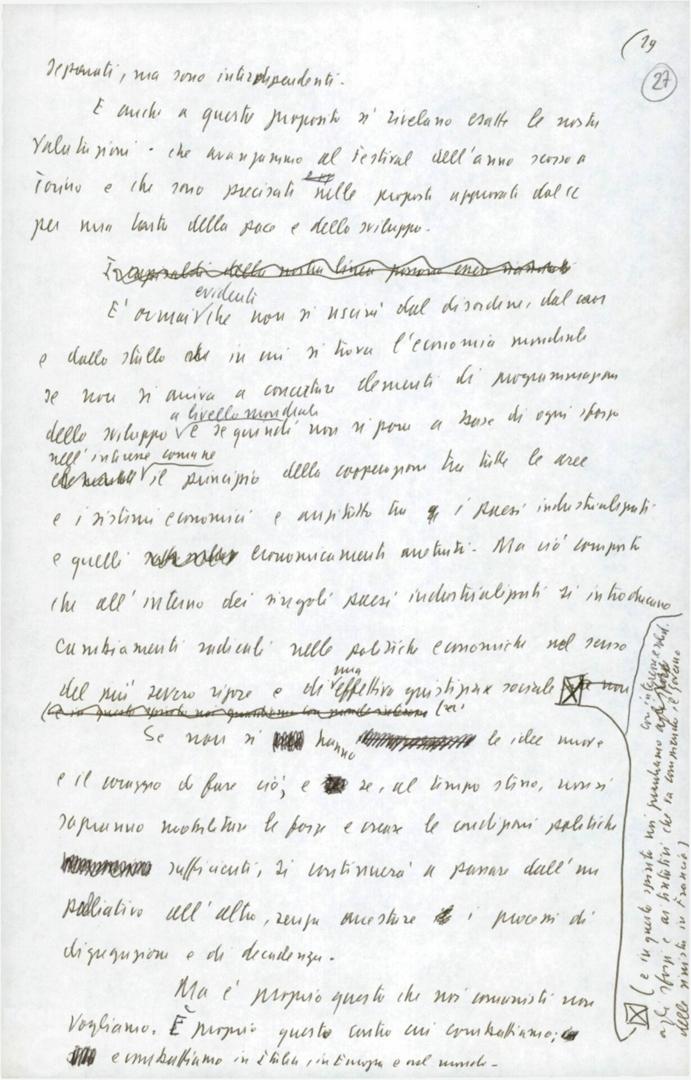 (19
27
separati, ma sono interdipendenti.
E anche a questo proposito si rivelano esatte le nostre
valutazioni - che avanzammo al Festival dell'anno scorso a
Torino e che sono precisati nelle proposte approvate dal CC
per una Carta della pace e dello sviluppo.
I capisaldi della nostra linea possono essere
evidenti
E' ormai che non si uscirà dal disordine, dal caos
e dallo stallo in cui si trova l'economia mondiale
se non si arriva a concertare elementi di programmazione
a livello mondiale
dello sviluppo e se quindi non si pone a base di ogni sforzo
nell'interesse comune
il principio della cooperazione tra tutte le aree
e i sistemi economici e anzitutto tra i paesi industrializzati
e quelli economicamente arretrati. Ma ciò comporta
che all'interno dei singoli paesi industrializzati si introducano
cambiamenti radicali nelle politiche economiche nel senso
una
del più severo rigore e di effettiva giustizia sociale
Se non si hanno le idee nuove
e il coraggio di fare ciò, e se, al tempo stesso, non si
sapranno mobilitare le forze e creare le condizioni politiche
sufficienti, si continuerà a passare dall'un
palliativo all'altro, senza arrestare i processi di
disgregazione e di decadenza.
Ma è proprio questo che noi comunisti non
vogliamo. È proprio questo contro cui combattiamo;
e combattiamo in Italia, in Europa e nel mondo.
(e in questo spirito noi guardiamo con interesse e
agli sforzi e ai tentativi che sta compiendo il governo
delle sinistre in Francia)